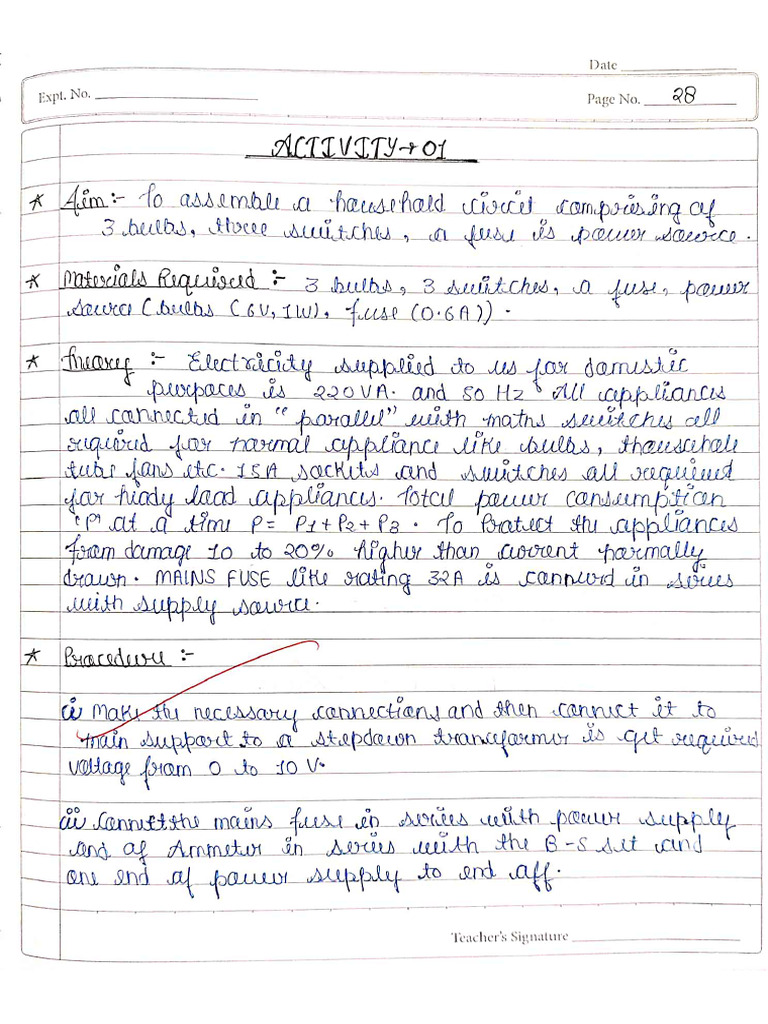 Date
Expt. No.
Page No. 28
ACTIVITY→01
* Aim:- To assemble a household circit comprising of
3 bulbs, three switches, a fuse is power source.
* Materials Required :- 3 bulbs, 3 switches, a fuse, power
source (bulbs (6V, 1W), fuse (0.6A)).
* Theorey :- Electricity supplied to us for domistic
purpaces is 220VA. and 50 Hz. All appliances
all connected in "parallel" with maths switches all
required for normal appliance like bulbs, thousehole
tube fans etc. 15A sockits and switches all required
for hiady load appliances. Total power consumption
'P' at a time P = P1 + P2 + P3. To Protect the appliances
from damage 10 to 20% higher than current normally
drawn. MAINS FUSE like rating 32A is connurd in series
with supply source.
* Procedure :-
i Make the necessary connections and then connect it to
main support to a stepdown transformor is get required
voltage from 0 to 10 V.
ii Connect the mains fuse in series with power supply
end of Ammeter in series with the B-S set and
one end of power supply to end aff.
Teacher's Signature